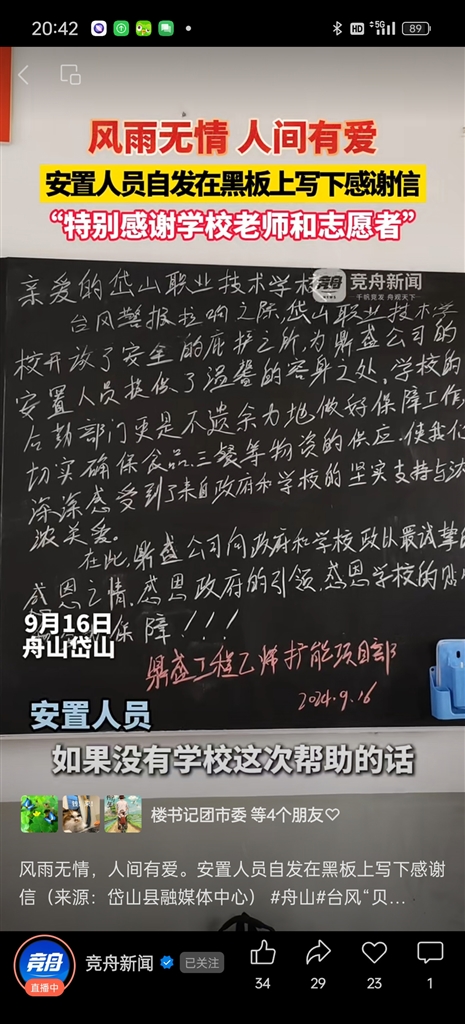 20:42
HD
5G
89
风雨无情 人间有爱
安置人员自发在黑板上写下感谢信
“特别感谢学校老师和志愿者”
竞舟新闻
千帆竞发 舟观天下
亲爱的岱山职业技术学校
台风警报拉响之际,岱山职业技术学
校开放了安全的庇护之所,为鼎盛公司的
安置人员提供了温馨的容身之处,学校的
后勤部门更是不遗余力地做好保障工作,
切实确保食品、三餐等物资的供应,使我们
深深感受到了来自政府和学校的坚实支持与浓
浓关爱。
在此,鼎盛公司向政府和学校致以最诚挚的
感恩之情,感恩政府的引领,感恩学校的贴
保障!!!
鼎盛工程乙师扩能项目部
2024.9.16
9月16日
舟山岱山
安置人员
如果没有学校这次帮助的话
楼书记团市委 等4个朋友♡
风雨无情，人间有爱。安置人员自发在黑板上写下感谢
信（来源：岱山县融媒体中心） #舟山#台风“贝...
竞舟
直播中
竞舟新闻
已关注
34
29
23
1